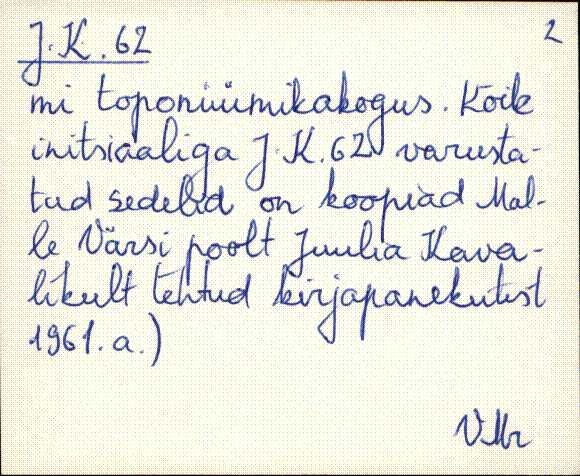 J. K. 62
2
mi toponüümikakogus. Kõik
initsiaaliga J. K. 62 varusta-
tud sedelid on koopiad Mal-
le Värsi poolt Juulia Kava-
likult tehtud kirjapanekutest
1961. a.)